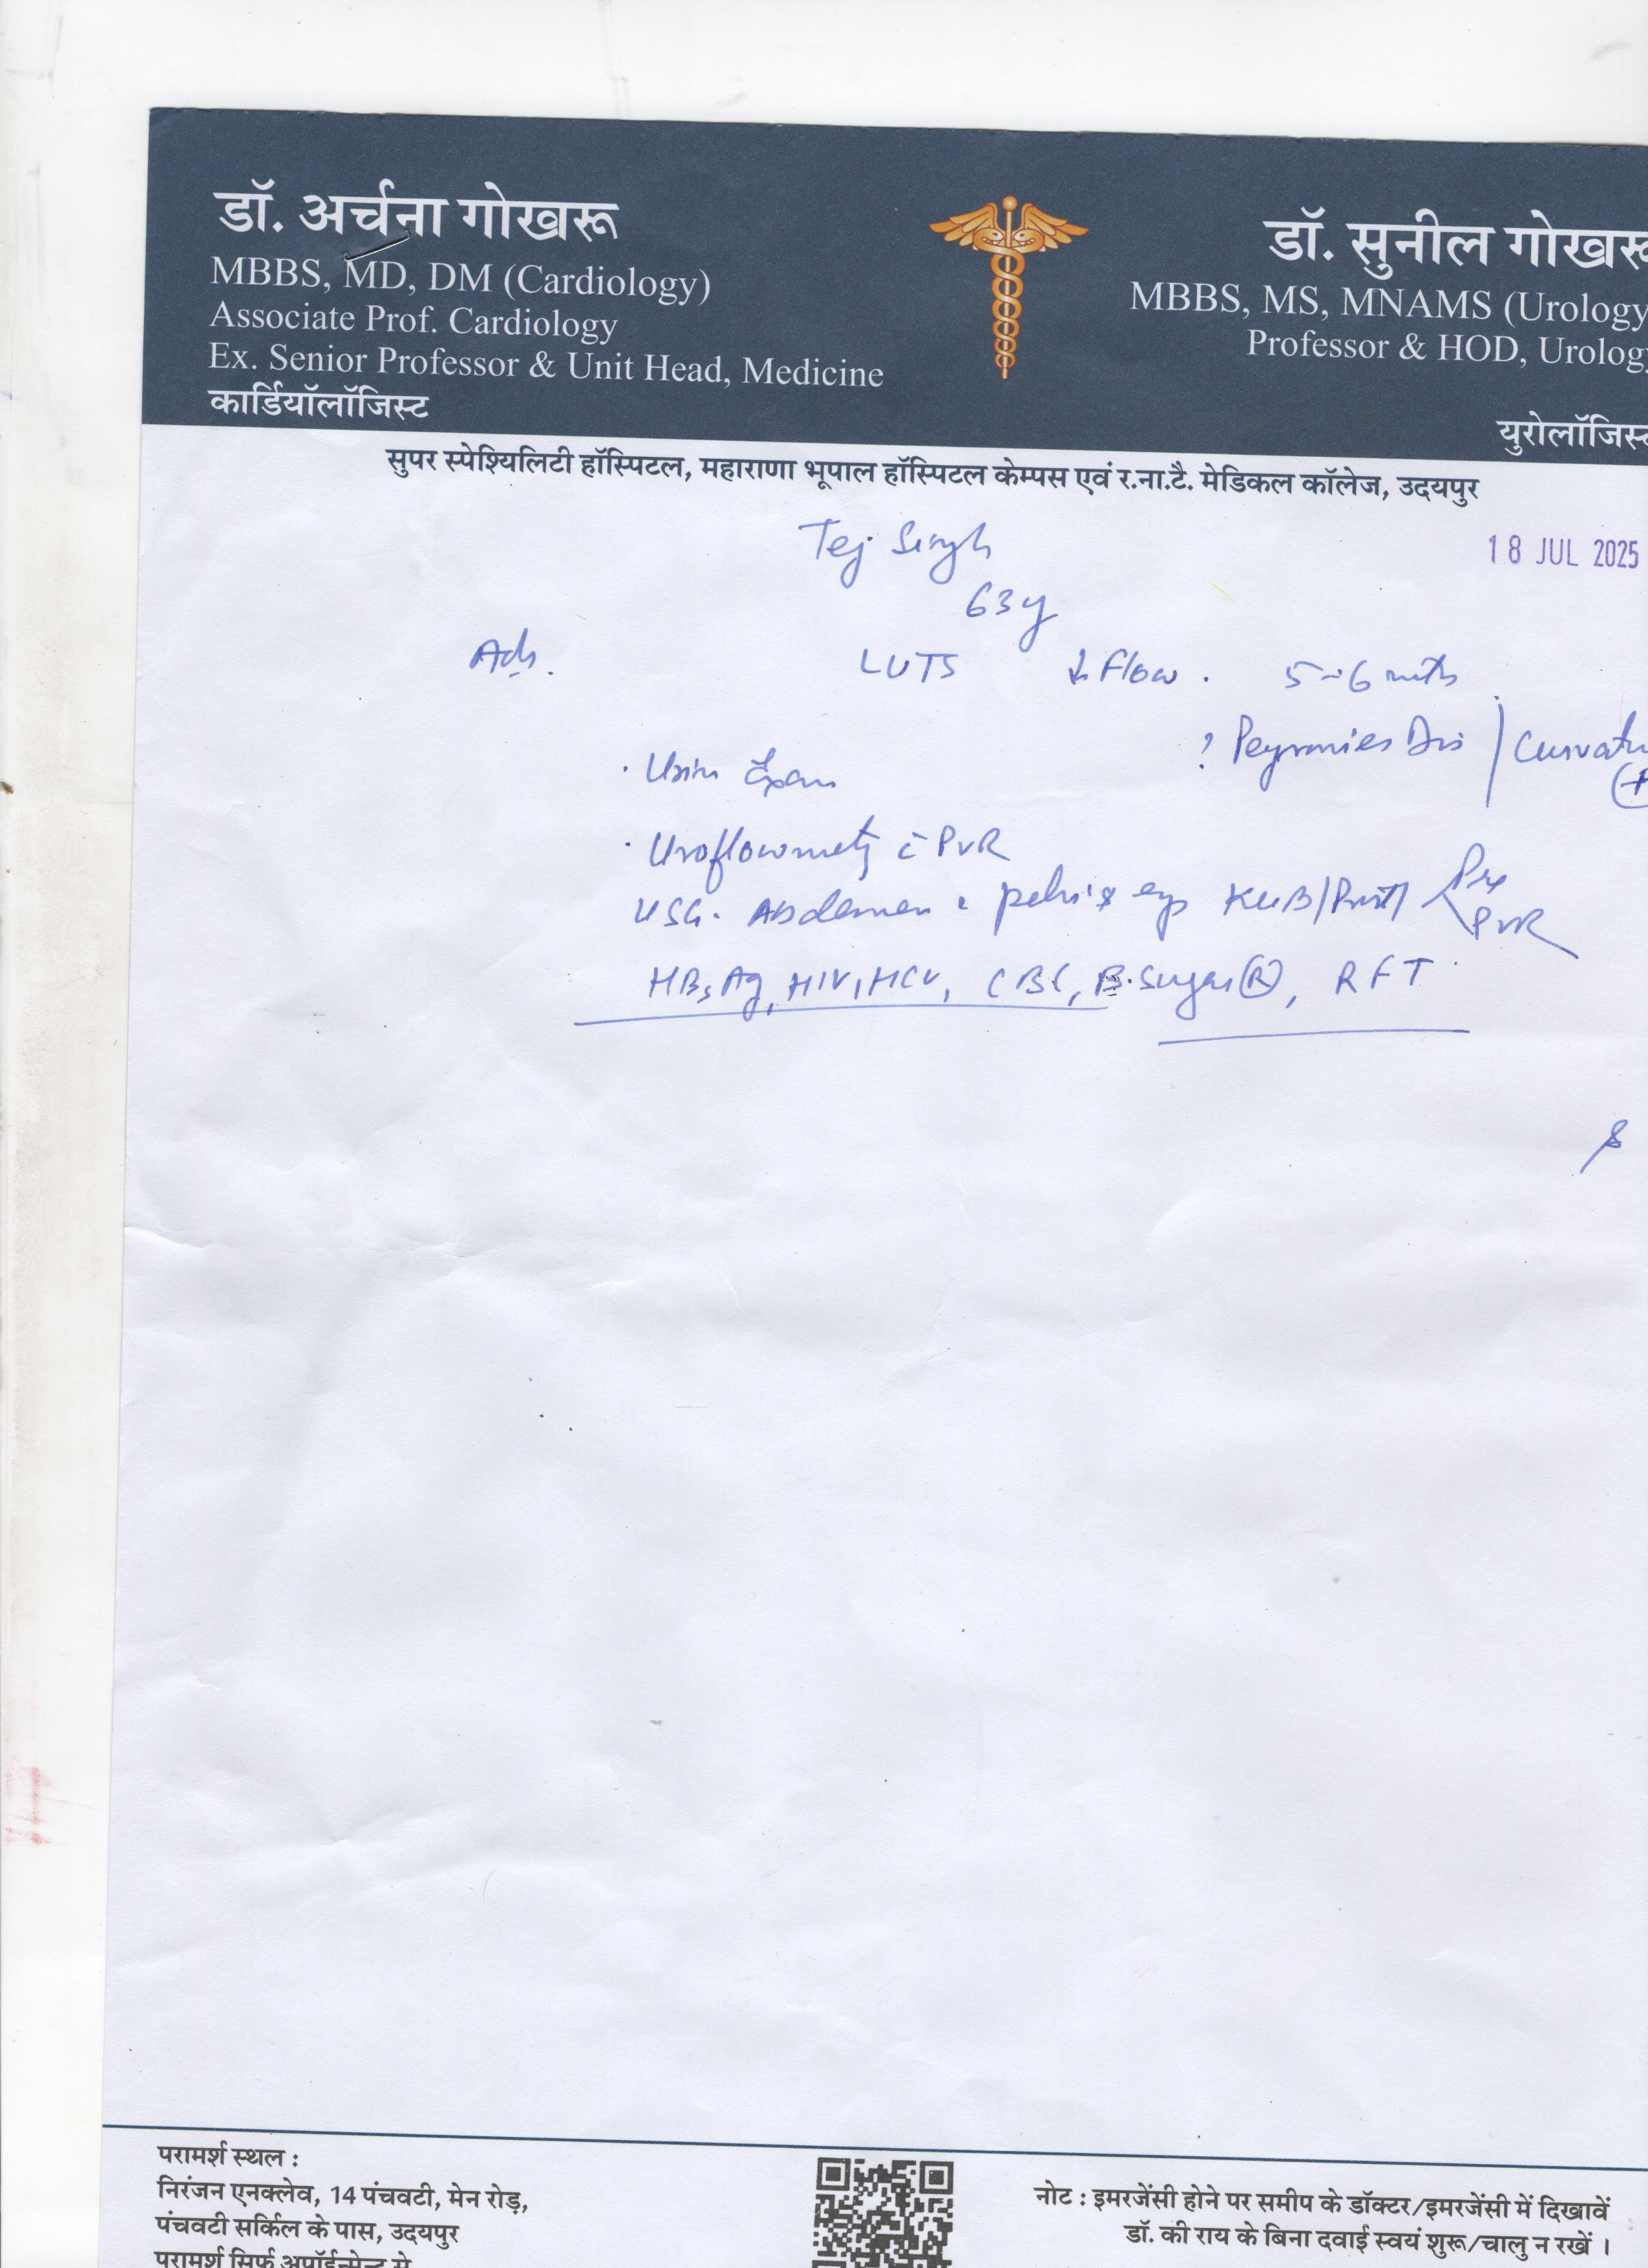 डॉ. अर्चना गोखरू
MBBS, MD, DM (Cardiology)
Associate Prof. Cardiology
Ex. Senior Professor & Unit Head, Medicine
कार्डियॉलॉजिस्ट
डॉ. सुनील गोखरू
MBBS, MS, MNAMS (Urology
Professor & HOD, Urology
युरोलॉजिस्ट
सुपर स्पेश्यिलिटी हॉस्पिटल, महाराणा भूपाल हॉस्पिटल केम्पस एवं र.ना.टै. मेडिकल कॉलेज, उदयपुर
Tej Singh
18 JUL 2025
63y
Adv.
LUTS ↓ Flow . 5-6 mths
? Peyronies Dis / Curvatu
(+
· Urine Exam
· Uroflowmetry c̄ PVR
USG. Abdomen c̄ pelvis esp KUB/Prost/ Pre
PVR
HBsAg, HIV, HCV, CBC, B.Sugar(R), RFT
परामर्श स्थल :
निरंजन एनक्लेव, 14 पंचवटी, मेन रोड़,
पंचवटी सर्किल के पास, उदयपुर
परामर्श सिर्फ अपॉईन्मेन्ट से
नोट : इमरजेंसी होने पर समीप के डॉक्टर/इमरजेंसी में दिखावें
डॉ. की राय के बिना दवाई स्वयं शुरू/चालु न रखें ।